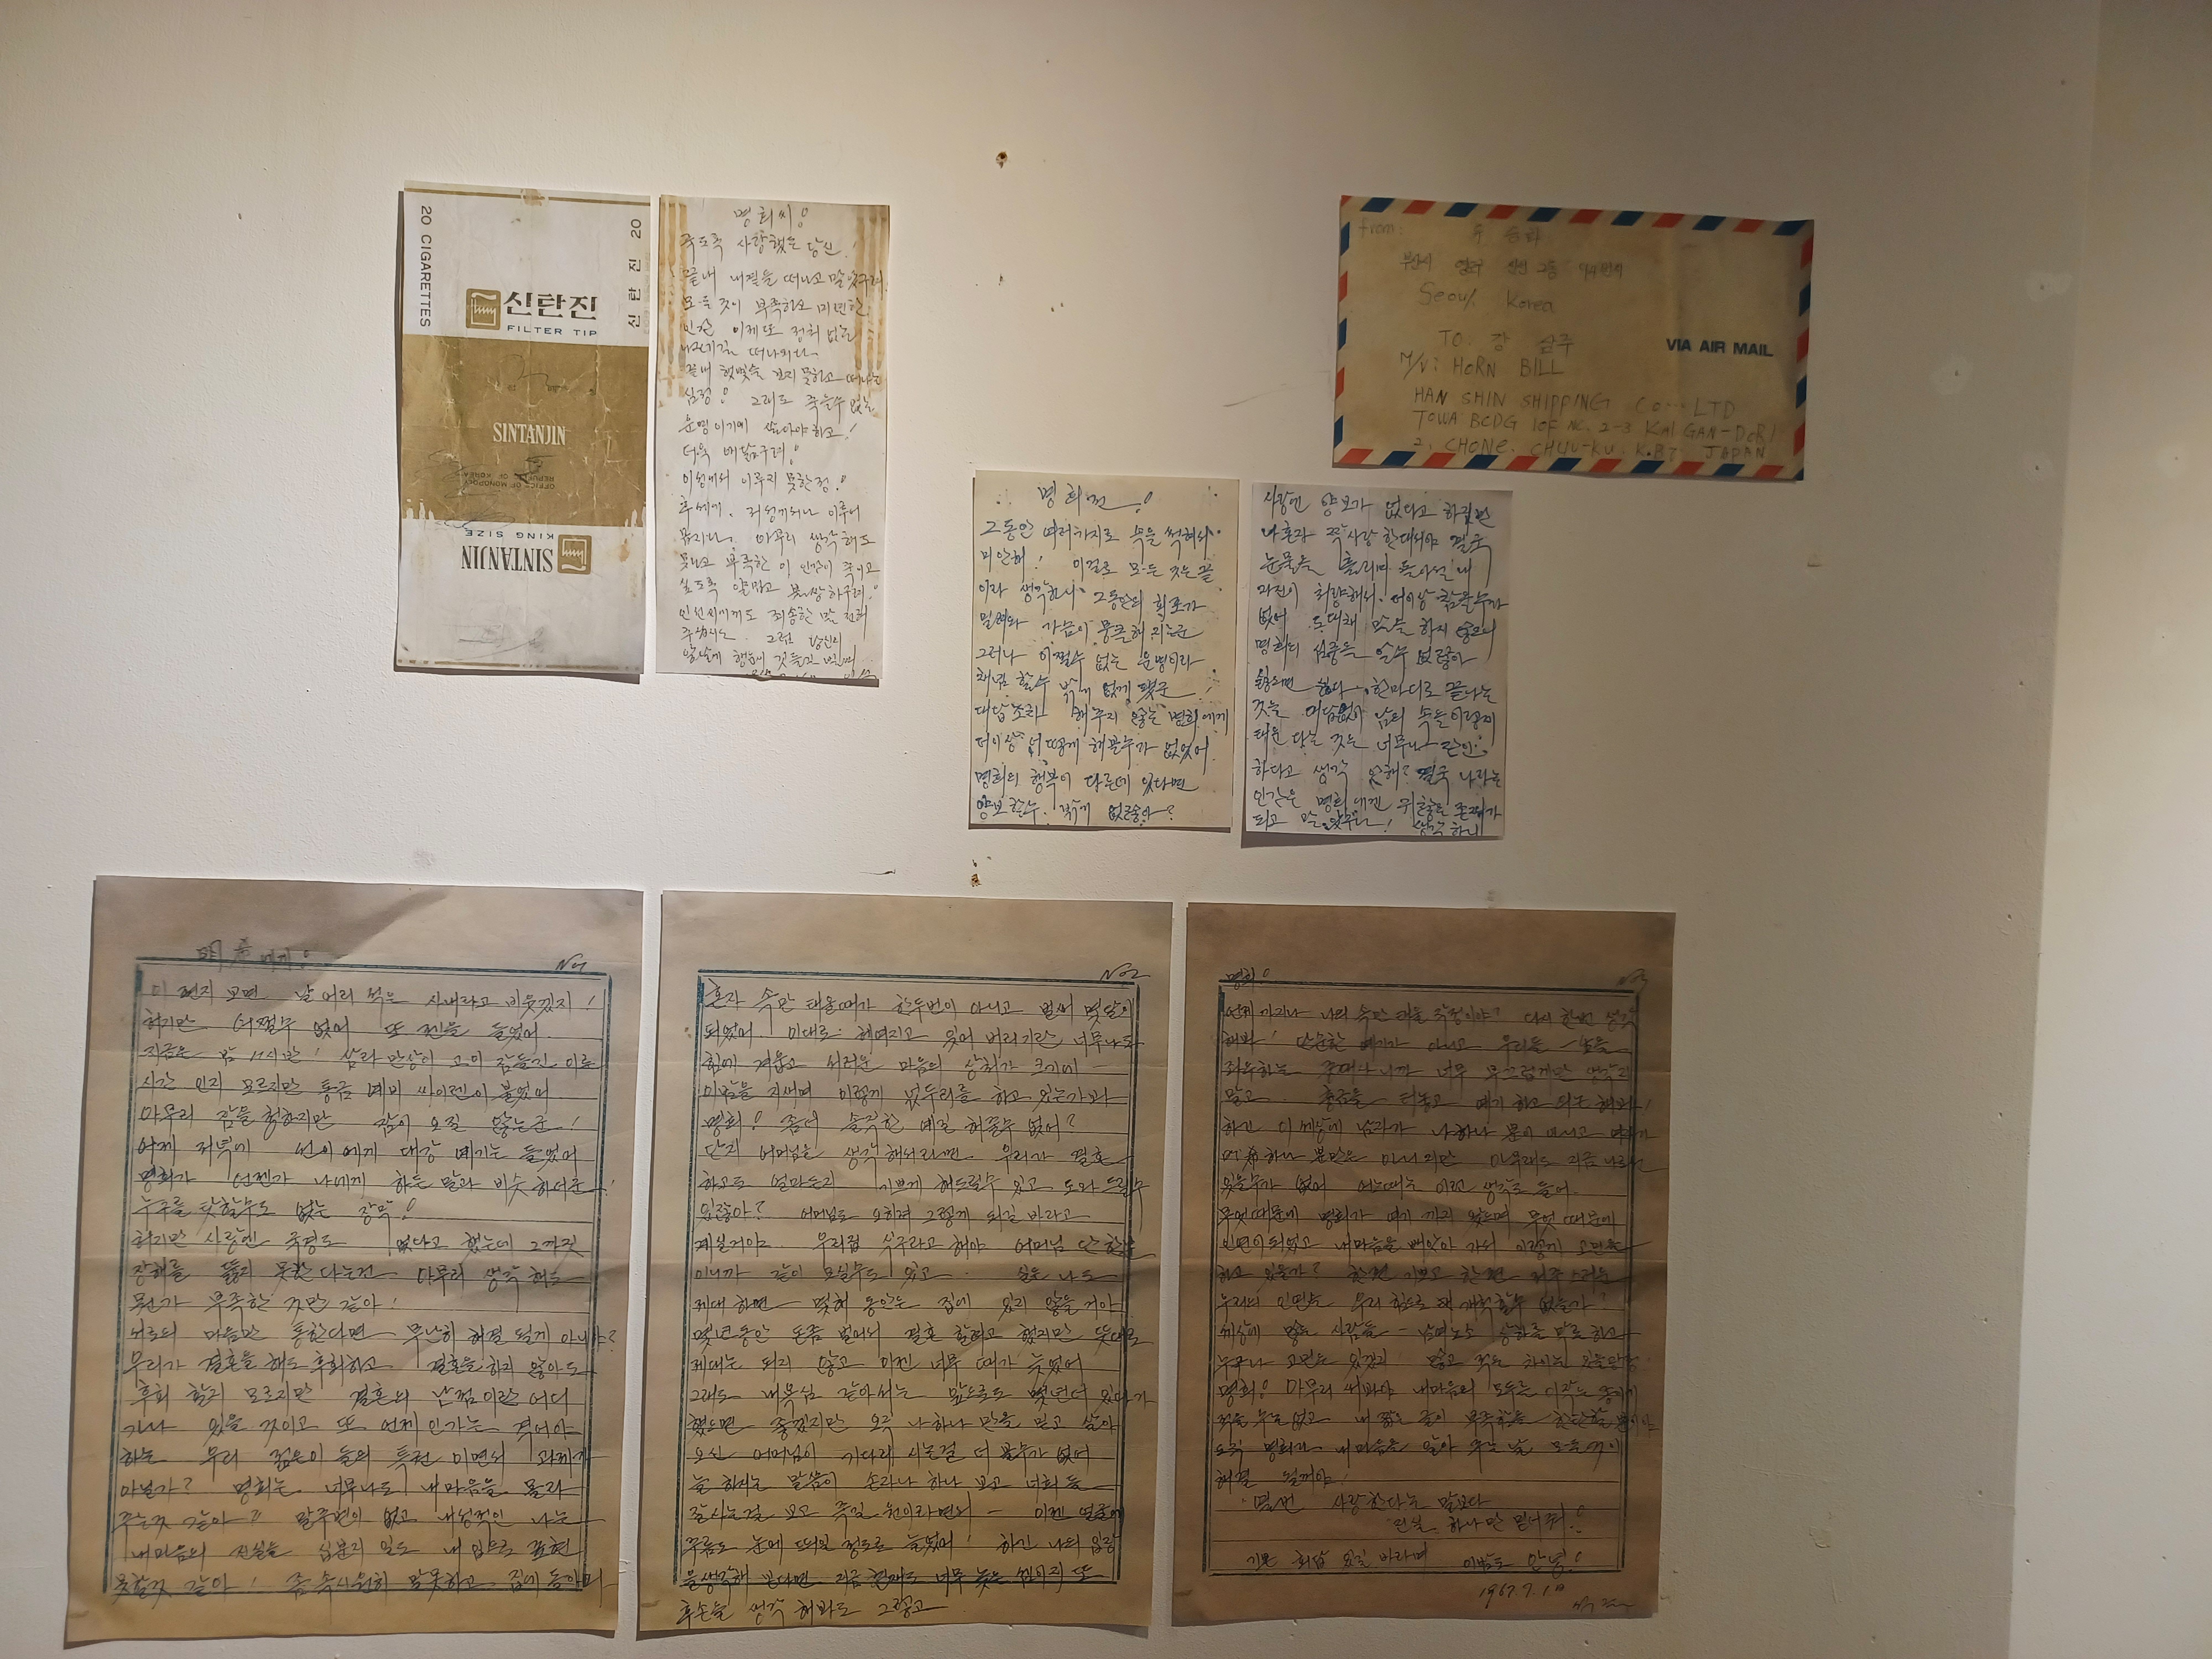 20 CIGARETTES
신탄진 20
신탄진
FILTER TIP
SINTANJIN
OFFICE OF MONOPOLY
REPUBLIC OF KOREA
KING SIZE
SINTANJIN
명희씨!
죽도록 사랑했든 당신!
끝내 내곁을 떠나고 말았구려
모든 것이 부족하고 미련한
인간 이제 또 정처 없는
나그네길 떠나리다.
끝내 햇빛을 보지 못하고 떠나는
심정! 그래도 죽을수 없는
운명이기에 살아야 하고!
더욱 애닯구려!
이승에서 이루지 못한정!
후세에. 저승에서나 이루어
보자. 아무리 생각해도
못나고 부족한 이 인간이 죽이고
싶도록 얄밉고 불쌍하구려!
죄송한 말 전해
주십시요. 그럼 당신의
앞날에 행운이 깃들고
from:
Seoul Korea
TO. 강 삼주
M/V: HORN BILL
HAN SHIN SHIPPING CO.. LTD
TOWA BCDG 10F NC. 2-3 KAIGAN-DORI
2. CHOME. CHUU-KU. K.B7 JAPAN
VIA AIR MAIL
명희전!
그동안 여러가지로 속을 썩혀서
미안해! 이걸로 모든 것은 끝
이라 생각하니 그동안의 회포가
밀려와 가슴이 뭉클해 지는군
그러나 어쩔수 없는 운명이라
체념 할수 밖에 없게 됐군!
대답조차 해주지 않는 명희에게
더이상 어떻게 해볼수가 없었어.
명희의 행복이 다른데 있다면
양보할수. 밖에 없잖아?
사랑엔 양보가 없다고 하지만
나혼자 짝사랑 한대서야 결국
눈물을 흘리며 돌아설 내
자신이 처량해서. 더이상 참을수가
없어 도대체 말을 하지 않으니
명희의 심중을 알수 없잖아
싫으면 싫다. 한마디로 끝나는
것을 대답없이 남의 속을 이렇게
태운 다는 것은 너무나 잔인
하다고 생각 안해? 결국 나라는
인간은 명희에겐 귀찮은 존재가
되고 말았구나! 생각하니
明希에게! No1
이 편지 보면 날 어리석은 사내라고 비웃겠지!
하지만 어쩔수 없어 또 펜을 들었어.
지금은 밤 11시반! 삼라만상이 고이 잠들진 이른
시간 인지 모르지만 통금 예비 싸이렌이 불었어.
아무리 잠을 청하지만 잠이 오질 않는군!
어제 저녁에 선이에게 대강 얘기는 들었어
명희가 언젠가 나에게 하는 말과 비슷 하더군!
누구를 탓할수도 없는 장벽!
하지만 사랑엔 국경도 없다고 했는데 그까짓
장해를 뚫지 못한다는건 아무리 생각해도
뭔가 부족한 것만 같아!
서로의 마음만 통한다면 무난히 해결 될게 아니야?
우리가 결혼을 해도 후회하고 결혼을 하지 않아도
후회 할지 모르지만 결혼의 난점이란 어디
가나 있을 것이고 또 언제인가는 겪어야
하는 우리 젊은이들의 특권 이면서 과제가
아닐까? 명희는 너무나도 내마음을 몰라
주는것 같아? 말주변이 없고 내성적인 나는
내마음의 진실을 십분지 일도 내 입으로 표현
못할것 같아! 좀 속시원히 말못하고 집에 돌아와
No2
혼자 속만 태울때가 한두번이 아니고 벌써 몇달이
되었어. 이대로 헤여지고 잊어 버리기란 너무나도
힘에 겨웁고 서러운 마음의 상처가 크기에
이밤을 지새며 이렇게 넋두리를 하고 있는가봐
명희! 좀더 솔직한 얘길 해줄수 없어?
단지 어머님을 생각해서라면 우리가 결혼
하고도 얼마든지 기쁘게 해드릴수 있고 도와 드릴수
있잖아? 어머님도 오히려 그렇게 되길 바라고
계실거야. 우리집 식구라고 해야 어머님 단 한분
이니까 같이 모실수도 있고 실은 나도
제대하면 몇해 동안은 집에 있지 않을거야
몇년동안 돈좀 벌어서 결혼 할려고 했지만 뜻대로
제대는 되지 않고 이젠 너무 때가 늦었어
그래도 내욕심 같아서는 앞으로도 몇년더 있다가
했으면 좋겠지만 오직 나하나 만을 믿고 살아
오신 어머님이 기다리시는걸 더 볼수가 없어
늘 하시는 말씀이 손자나 하나 보고 너희들
잘사는걸 보고 죽일 원이라면서 - 이젠 얼굴에
주름도 눈에 띄일 정도로 늘었어! 하긴 나의 입장
을생각해 본다면 지금 현재도 너무 늦은 셈이지 또
후손을 생각 해봐도 그렇고
명희! No3
언제 까지나 나의 속만 태울 작정이야? 다시 한번 생각
해봐! 단순한 얘기가 아니고 우리들 일을
좌우하는 중대사니까 너무 무그렇게만 생각지
말고 흉금을 터놓고 얘기하고 의논 해봐!
하긴 이 세상에 남자가 나하나 뿐이 아니고 여자가
있을수가 없어 어느때는 이런 생각도 들어.
무엇때문에 명희가 여기 까지 왔으며 무엇 때문에
인연이 되었고 내마음을 빼앗아 가서 이렇게 고민을
하고 있을가? 한편 기쁘고 한편
우리의 인연을 우리 힘으로 개척할수 없을가?
세상에 많은 사람들 - 남여노소 상하를 막론하고
누구나 고민은 있겠지! 많고 적은 차이는 있을망정
명희! 아무리 써봐야 내마음의 모두를 이작은 종이에
적을 수도 없고 내 짧은 글이 부족함을 한탄할 뿐이야
오직 명희가 내마음을 알아 주는 날 모든것이
해결 될꺼야!
열번 사랑한다는 말보다
진실 하나만 믿어줘!
기쁜 회답 있길 바라며 이밤도 안녕!
1967.7.10